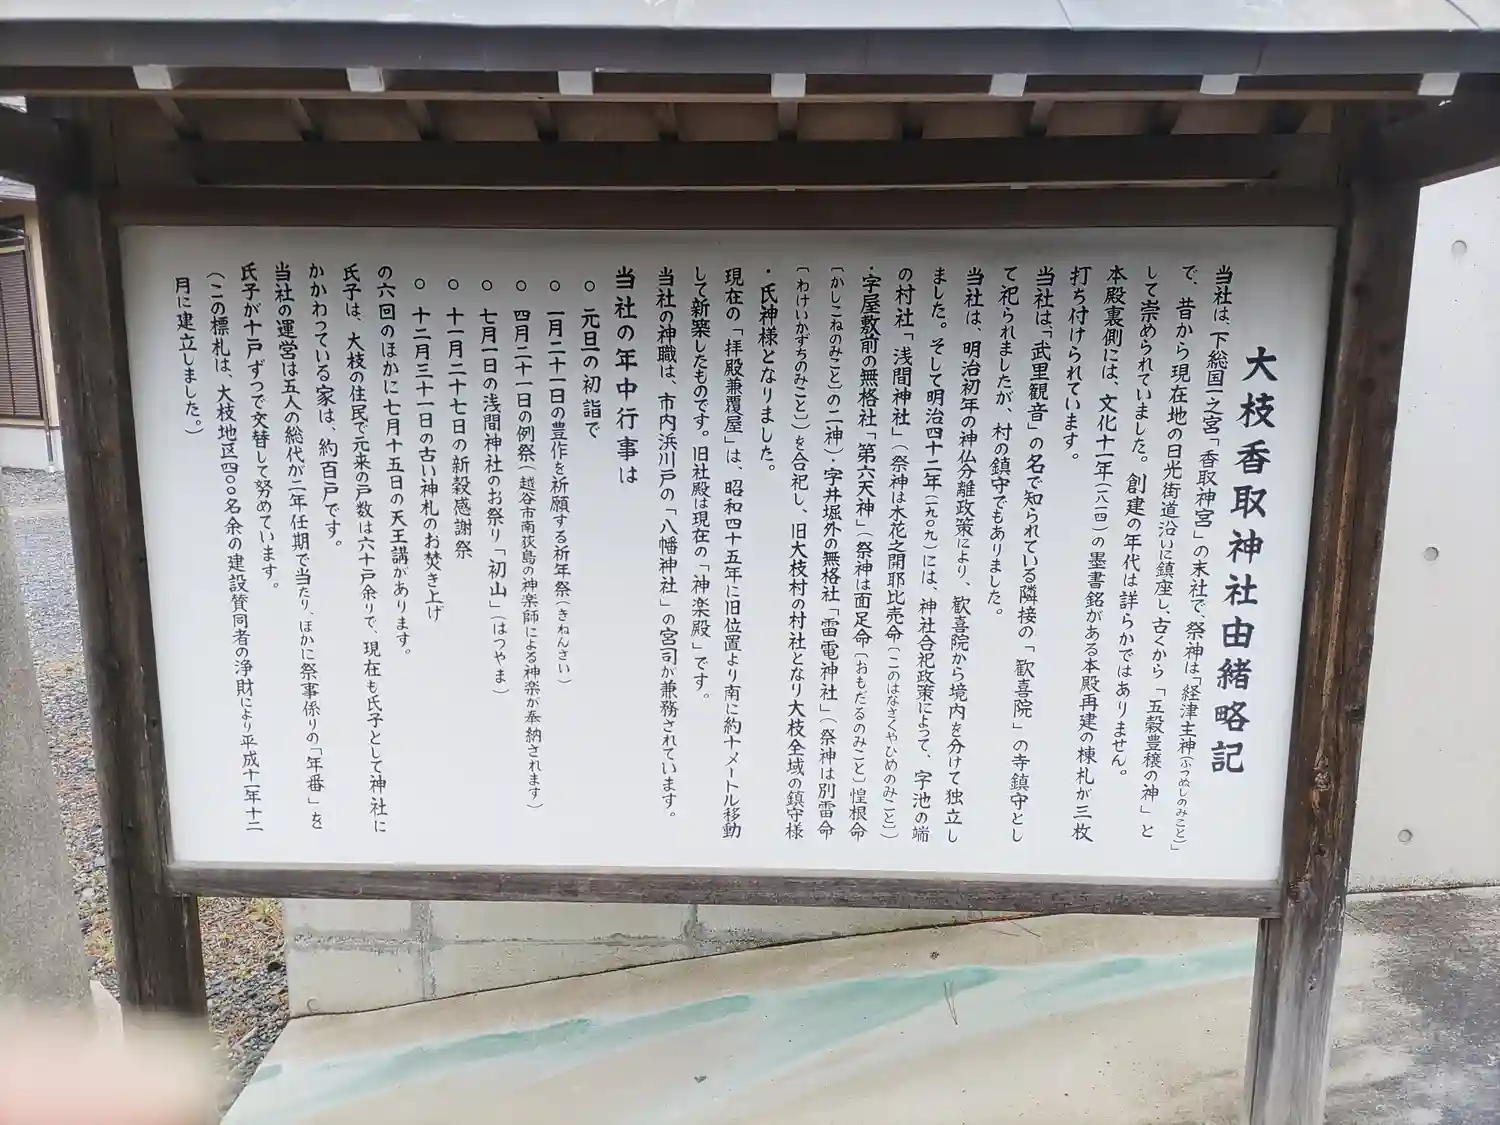 大枝香取神社由緒略記
当社は、下総国一之宮「香取神宮」の末社で、祭神は「経津主神(ふつぬしのみこと)」
で、昔から現在地の日光街道沿いに鎮座し、古くから「五穀豊穣の神」と
して崇められていました。創建の年代は詳らかではありません。
本殿裏側には、文化十一年(一八一四)の墨書銘がある本殿再建の棟札が三枚
打ち付けられています。
当社は「武里観音」の名で知られている隣接の「歓喜院」の寺鎮守とし
て祀られましたが、村の鎮守でもありました。
当社は、明治初年の神仏分離政策により、歓喜院から境内を分けて独立し
ました。そして明治四十二年(一九〇九)には、神社合祀政策によって、字池の端
の村社「浅間神社」(祭神は木花之開耶比売命〔このはなさくやひめのみこと〕)
・字屋敷前の無格社「第六天神」(祭神は面足命〔おもだるのみこと〕惶根命
〔かしこねのみこと〕の二神)・字井堀外の無格社「雷電神社」(祭神は別雷命
〔わけいかずちのみこと〕)を合祀し、旧大枝村の村社となり大枝全域の鎮守様
・氏神様となりました。
現在の「拝殿兼覆屋」は、昭和四十五年に旧位置より南に約十メートル移動
して新築したものです。旧社殿は現在の「神楽殿」です。
当社の神職は、市内浜川戸の「八幡神社」の宮司が兼務されています。
当社の年中行事は
○ 元旦の初詣で
○ 一月二十一日の豊作を祈願する祈年祭(きねんさい)
○ 四月二十一日の例祭(越谷市南荻島の神楽師による神楽が奉納されます)
○ 七月一日の浅間神社のお祭り「初山」(はつやま)
○ 十一月二十七日の新穀感謝祭
○ 十二月三十一日の古い神札のお焚き上げ
の六回のほかに七月十五日の天王講があります。
氏子は、大枝の住民で元来の戸数は六十戸余りで、現在も氏子として神社に
かかわっている家は、約百戸です。
当社の運営は五人の総代が二年任期で当たり、ほかに祭事係りの「年番」を
氏子が十戸ずつで交替して努めています。
(この標札は、大枝地区四〇〇名余の建設賛同者の浄財により平成十一年十二
月に建立しました。)